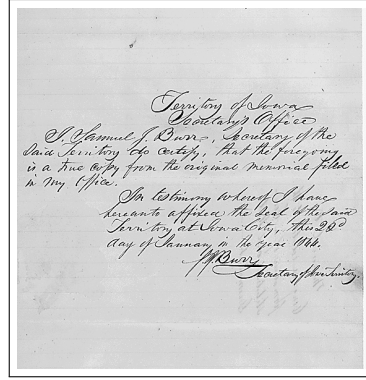 Territory of Iowa
Secretary's Office
I, Samuel J. Burr, Secretary of the
said Territory do certify, that the foregoing
is a true copy from the original memorial filed
in my Office.
In testimony whereof I have
hereunto affixed the Seal of the said
Territory at Iowa City, this 23d
day of January in the year 1844.
S. J. Burr
Secretary of Iowa Territory.